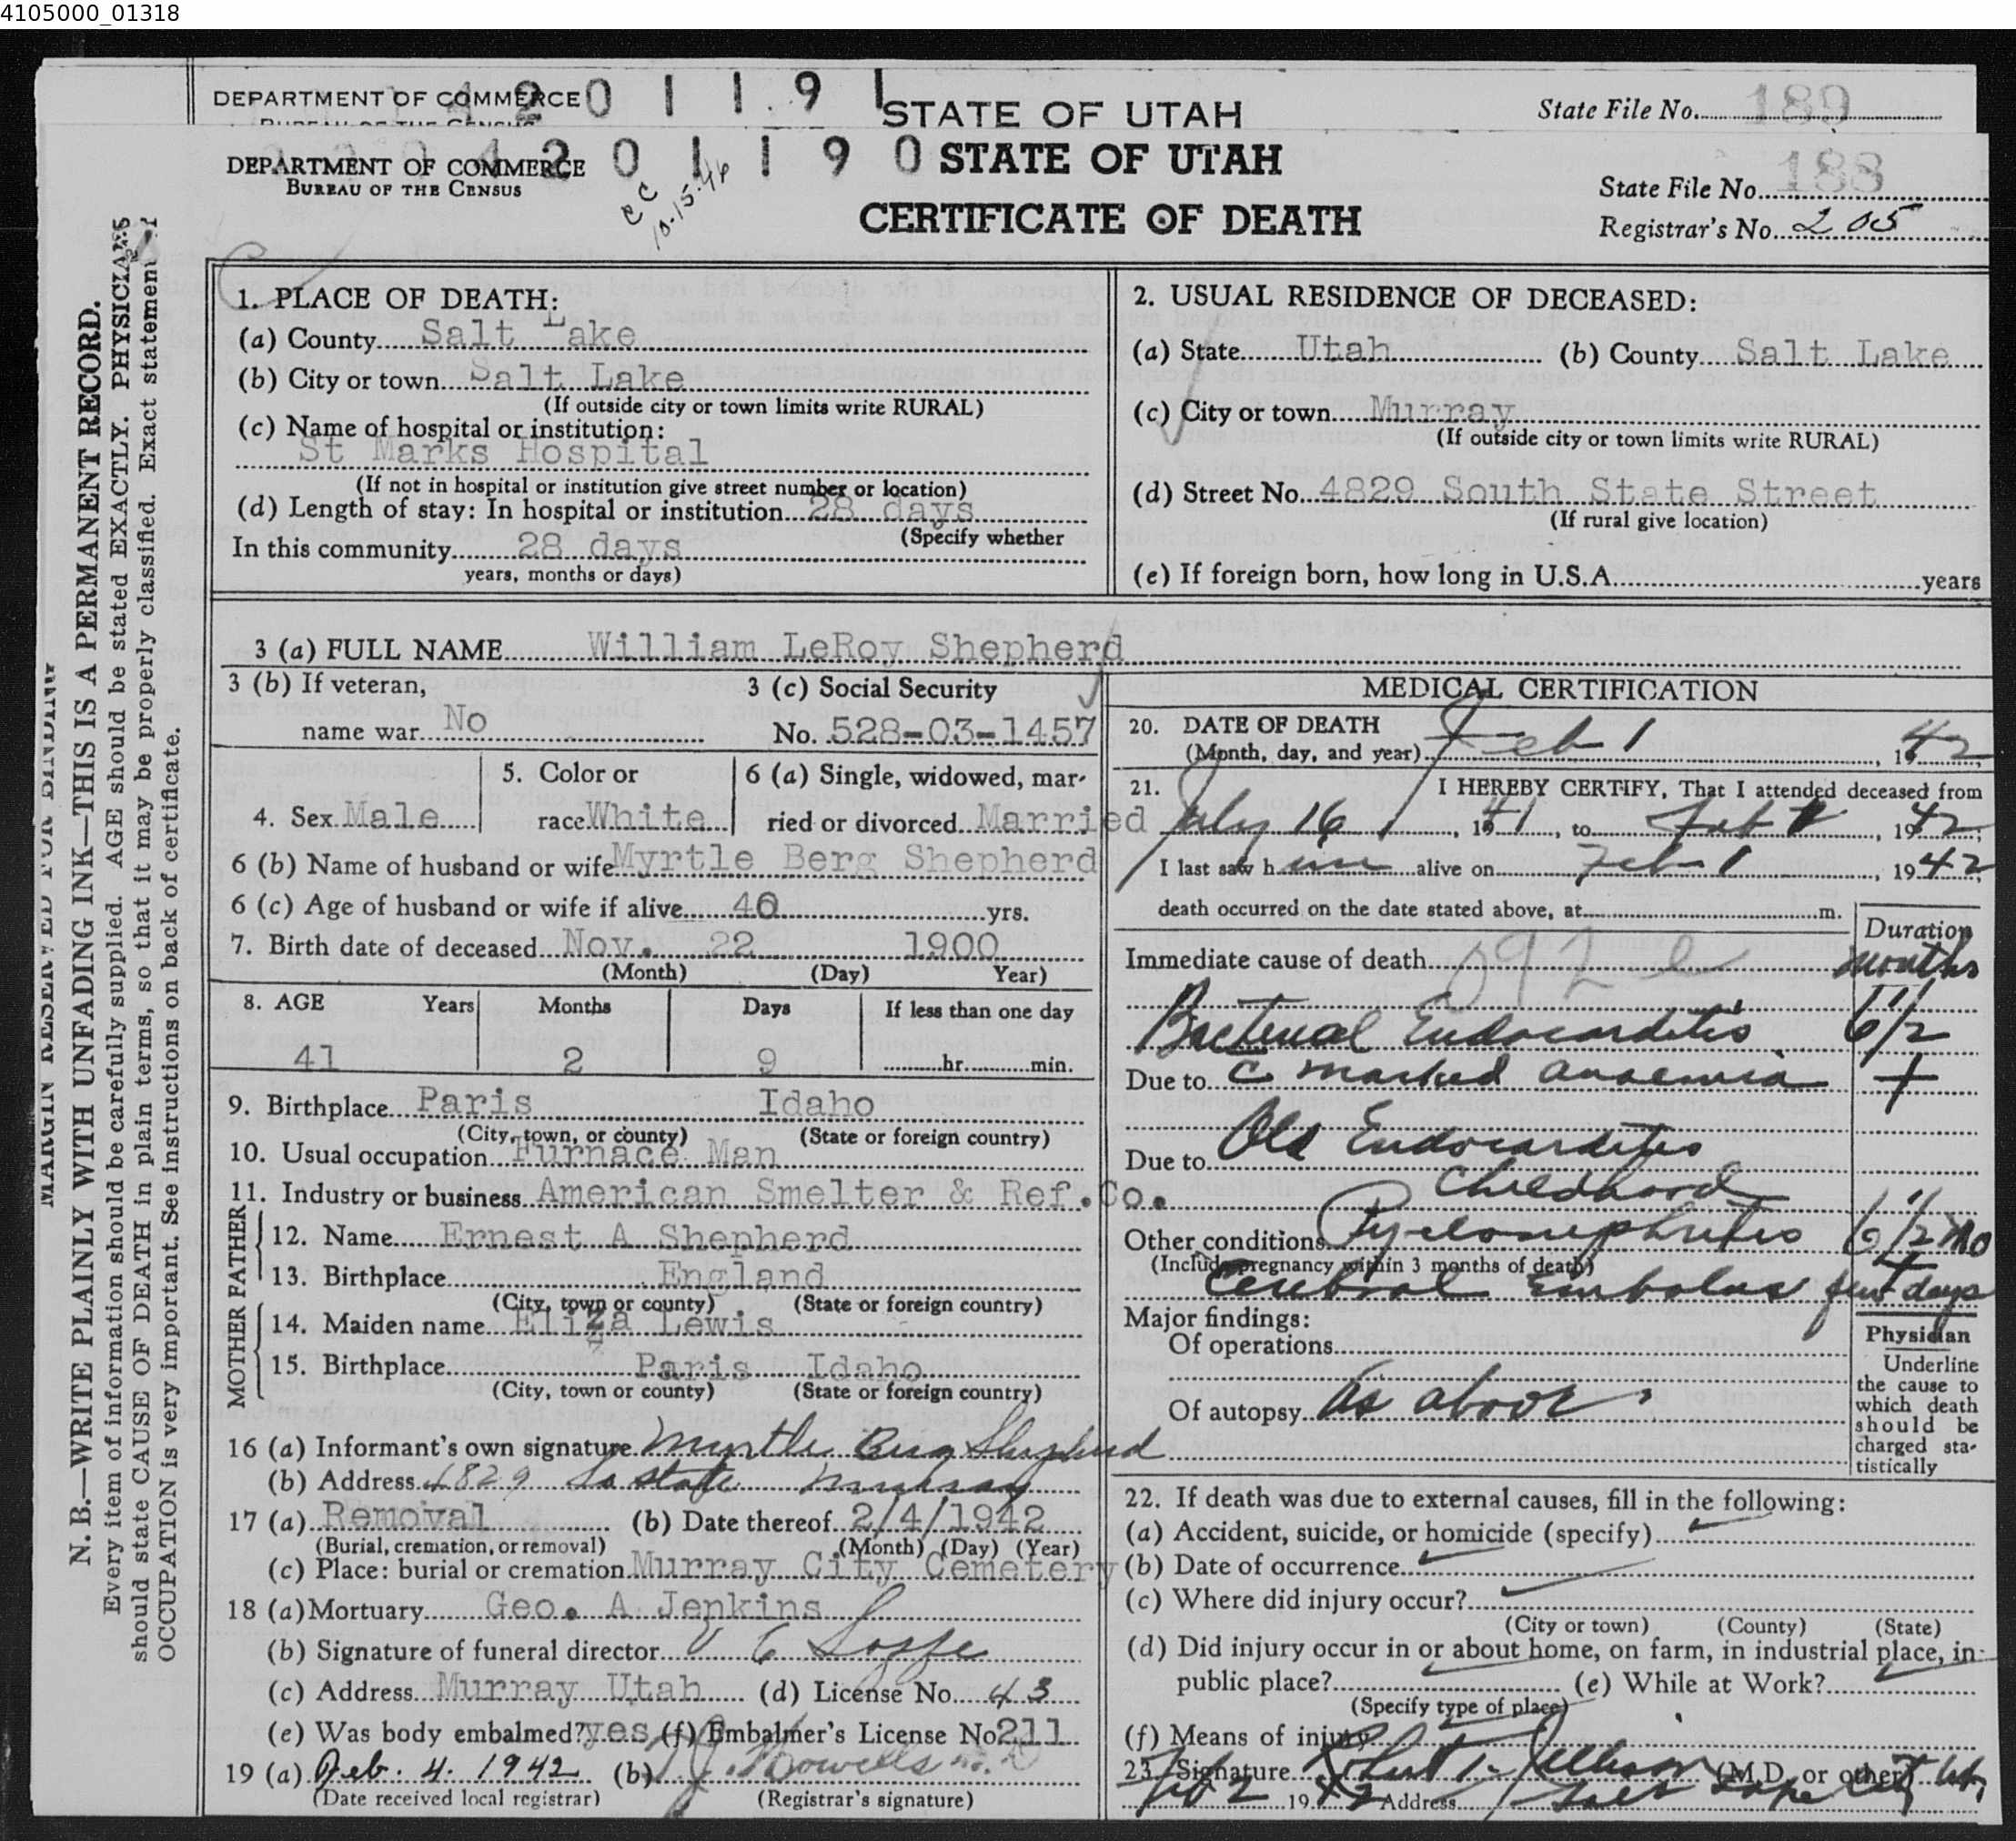 4105000_01318
DEPARTMENT OF COMMERCE 4201191 STATE OF UTAH State File No. 189
DEPARTMENT OF COMMERCE 4201190 STATE OF UTAH
BUREAU OF THE CENSUS
State File No. 188
CC 10-15-46
CERTIFICATE OF DEATH
Registrar's No. 205
MARGIN RESERVED FOR BINDING
N. B.—WRITE PLAINLY WITH UNFADING INK—THIS IS A PERMANENT RECORD.
Every item of information should be carefully supplied. AGE should be stated EXACTLY. PHYSICIANS
should state CAUSE OF DEATH in plain terms, so that it may be properly classified. Exact statement
OCCUPATION is very important. See instructions on back of certificate.
1. PLACE OF DEATH:
(a) County Salt Lake
(b) City or town Salt Lake
(If outside city or town limits write RURAL)
(c) Name of hospital or institution:
St Marks Hospital
(If not in hospital or institution give street number or location)
(d) Length of stay: In hospital or institution 28 days
(Specify whether
In this community 28 days
years, months or days)
2. USUAL RESIDENCE OF DECEASED:
(a) State Utah (b) County Salt Lake
(c) City or town Murray
(If outside city or town limits write RURAL)
(d) Street No. 4829 South State Street
(If rural give location)
(e) If foreign born, how long in U.S.A. years
3 (a) FULL NAME William LeRoy Shepherd
3 (b) If veteran,
name war No
3 (c) Social Security
No. 528-03-1457
4. Sex Male
5. Color or
race White
6 (a) Single, widowed, mar-
ried or divorced Married
6 (b) Name of husband or wife Myrtle Berg Shepherd
6 (c) Age of husband or wife if alive 40 yrs.
7. Birth date of deceased Nov. 22 1900
(Month) (Day) Year)
8. AGE Years Months Days If less than one day
41 2 9 hr. min.
9. Birthplace Paris Idaho
(City, town, or county) (State or foreign country)
10. Usual occupation Furnace Man
11. Industry or business American Smelter & Ref.Co.
FATHER
12. Name Ernest A Shepherd
13. Birthplace England
(City, town or county) (State or foreign country)
MOTHER
14. Maiden name Eliza Lewis
15. Birthplace Paris Idaho
(City, town or county) (State or foreign country)
16 (a) Informant's own signature Myrtle Berg Shepherd
(b) Address 4829 So state Murray
17 (a) Removal (b) Date thereof 2/4/1942
(Burial, cremation, or removal) (Month) (Day) (Year)
(c) Place: burial or cremation Murray City Cemetery
18 (a) Mortuary Geo. A Jenkins
(b) Signature of funeral director
(c) Address Murray Utah (d) License No. 43
(e) Was body embalmed? yes (f) Embalmer's License No 211
19 (a) Feb. 4. 1942 (b)
(Date received local registrar) (Registrar's signature)
MEDICAL CERTIFICATION
20. DATE OF DEATH
(Month, day, and year) Feb 1, 1942
21. I HEREBY CERTIFY, That I attended deceased from
July 16, 1941, to Feb 1, 1942
I last saw him alive on Feb 1, 1942
death occurred on the date stated above, at m.
Duration
Immediate cause of death 092 e months
Bacterial Endocarditis 6 1/2
Due to c marked anaemia +
Old Endocarditis
Due to
Childhood
Other conditions Pyelonephritis 6 1/2 mo
(Include pregnancy within 3 months of death)
Cerebral Embolus few days
Major findings:
Of operations
Of autopsy As above
Physician
Underline
the cause to
which death
should be
charged sta-
tistically
22. If death was due to external causes, fill in the following:
(a) Accident, suicide, or homicide (specify)
(b) Date of occurrence
(c) Where did injury occur?
(City or town) (County) (State)
(d) Did injury occur in or about home, on farm, in industrial place, in
public place? (e) While at Work?
(Specify type of place)
(f) Means of injury
23. Signature (M.D. or other)
Feb 2 1942 Address Salt Lake City Ut